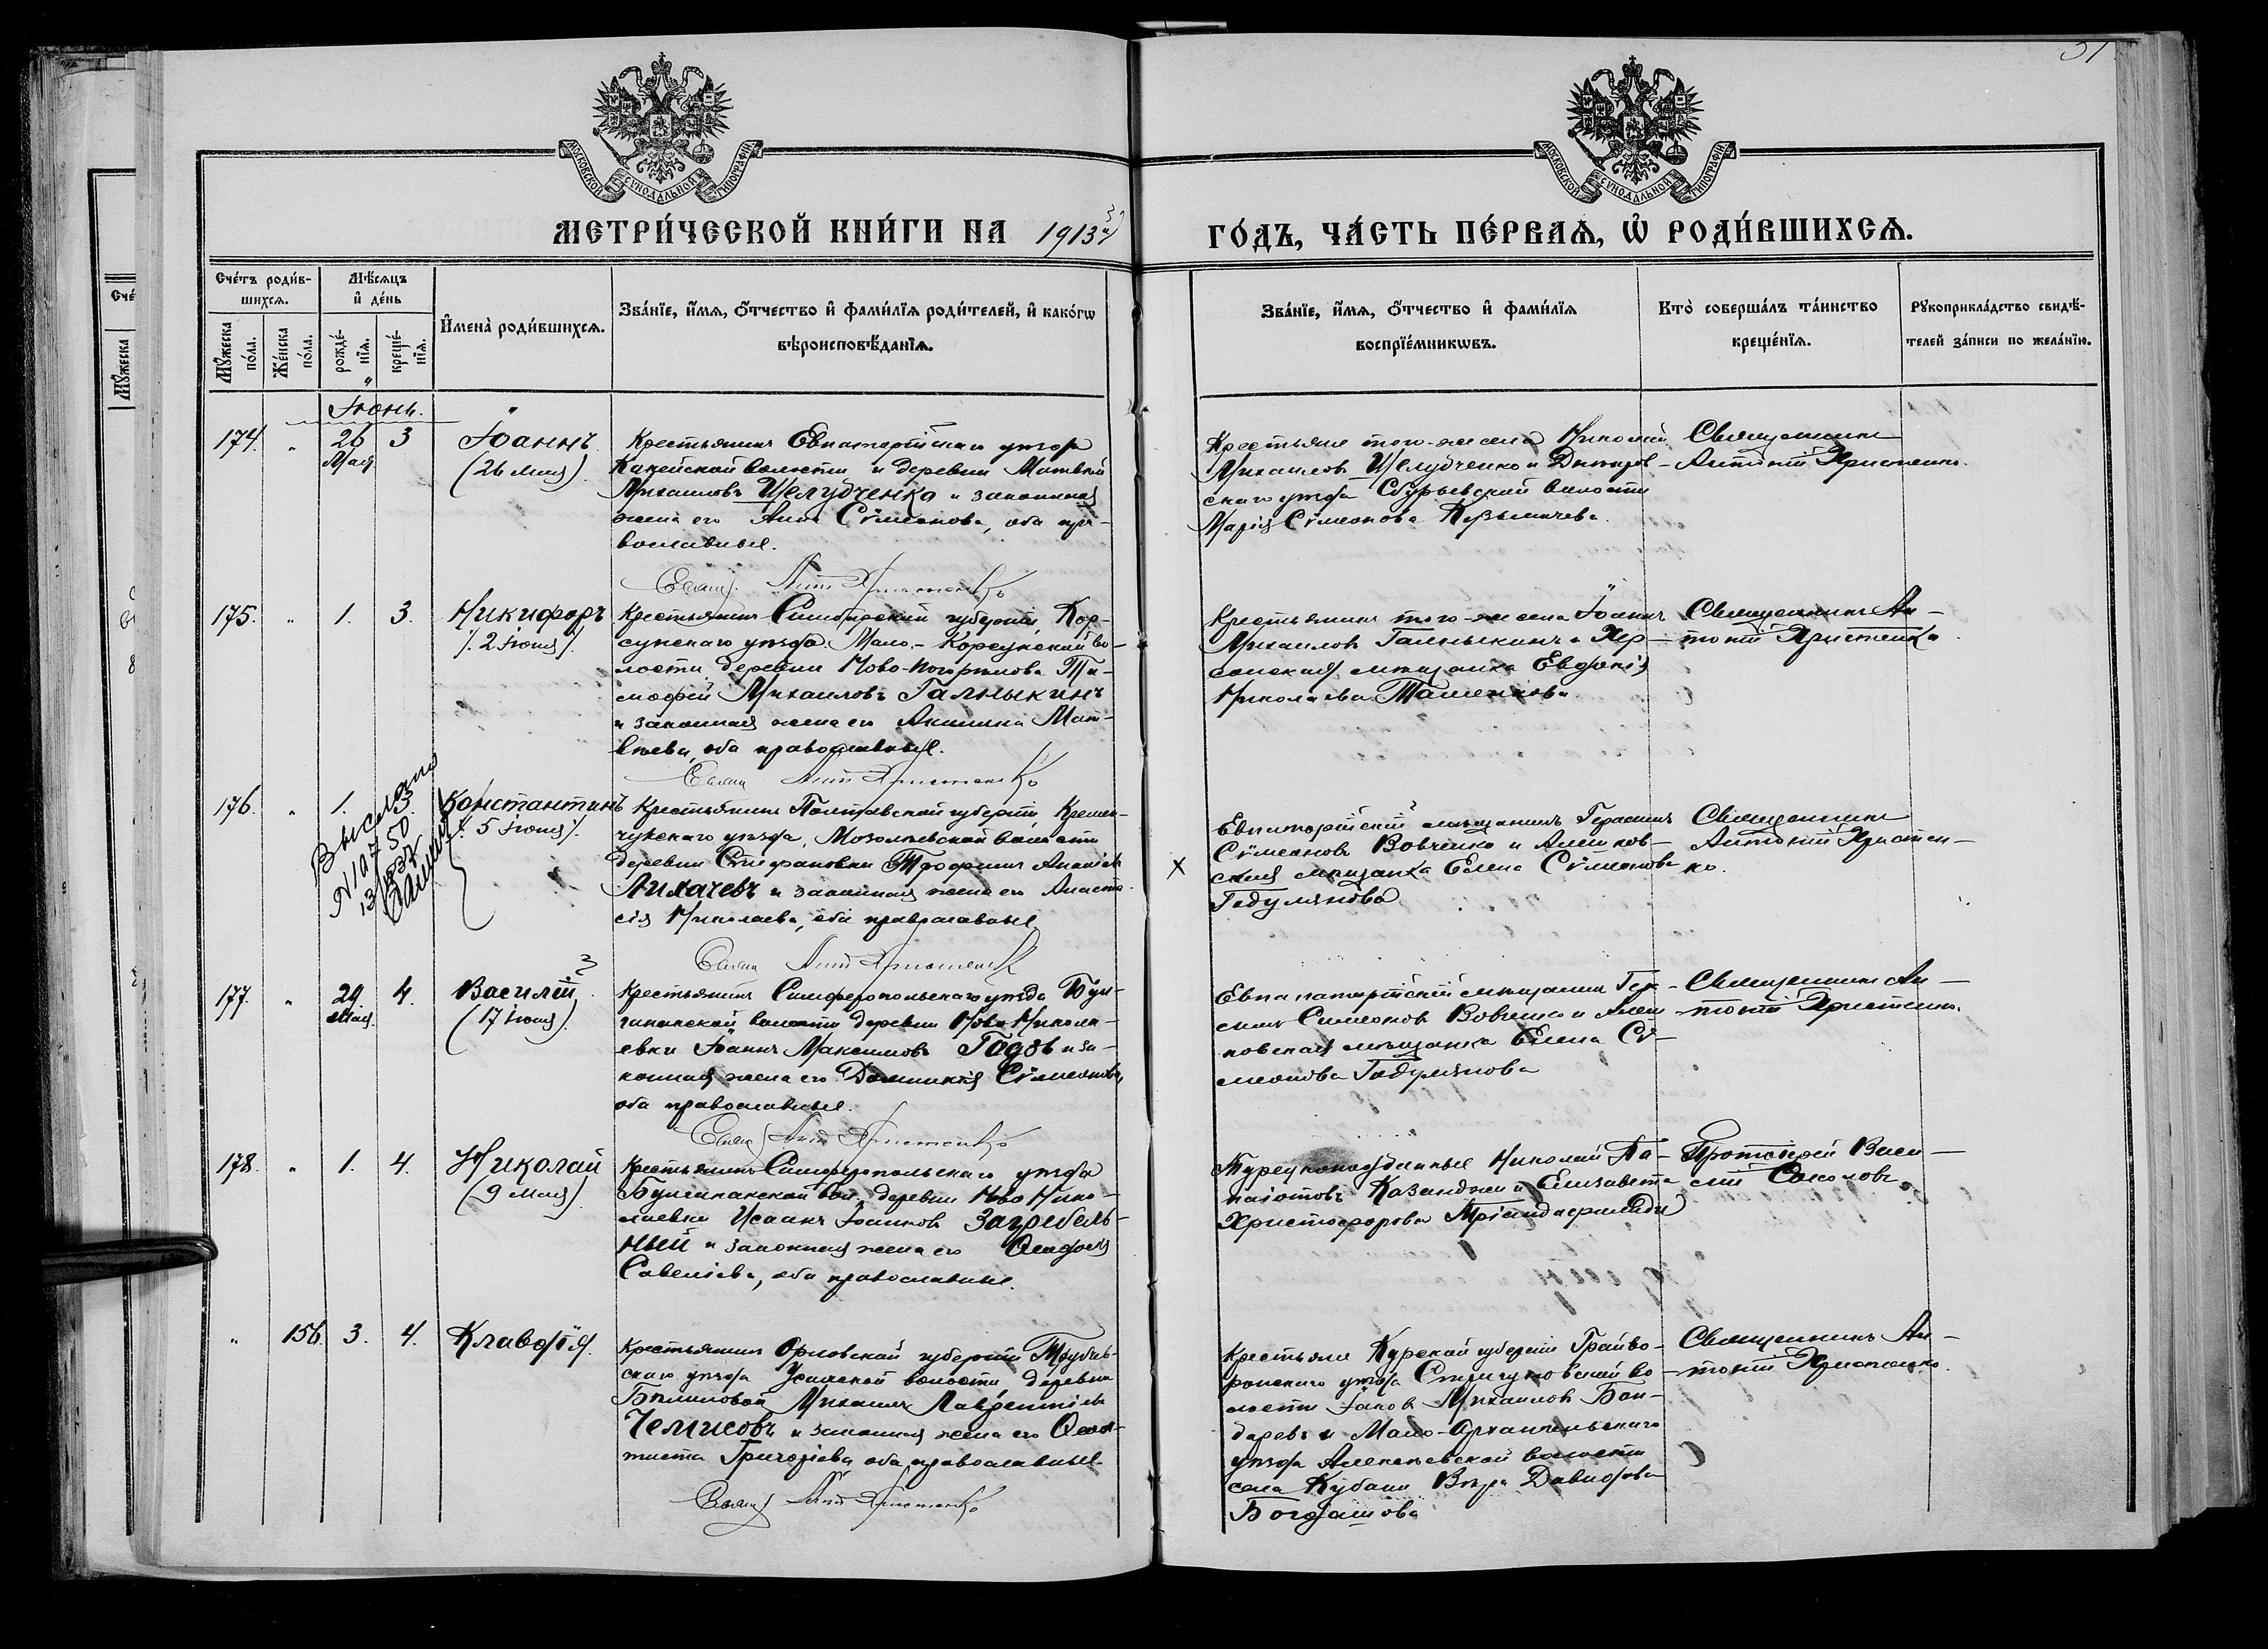 31
МОСКОВСКОЙ СѴНОДАЛЬНОЙ ТИПОГРАФІИ
МОСКОВСКОЙ СѴНОДАЛЬНОЙ ТИПОГРАФІИ
МЕТРИ́ЧЕСКОЙ КНИ́ГИ НА 1913
ГО́ДЪ, ЧА́СТЬ ПЕ́РВАѦ, Ѡ҆ РОДИ́ВШИХСѦ.
Сче́тъ роди́в-
шихсѧ.
Мꙋжеска по́ла.
Же́нска по́ла.
Мѣ́сѧцъ
и҆ де́нь
рожде́-
нїѧ.
креще́-
нїѧ.
И҆мена̀ роди́вшихсѧ.
Зва́нїе, и҆́мѧ, ѻ҆́тчество и҆ фами́лїѧ роди́телей, и҆ како́гѡ
вѣроисповѣ́данїѧ.
Зва́нїе, и҆́мѧ, ѻ҆́тчество и҆ фами́лїѧ
воспрїе́мникѡвъ.
Кто̀ соверша́лъ та́инство
креще́нїѧ.
Рꙋкоприкла́дство свидѣ́-
телей за́писи по жела́нїю.
Іюнь.
174. " 26 Мая 3 Іоаннъ
(26 мая)
Крестьянинъ Евпаторійскаго уѣзда
волости и деревни Матвей
Михаиловъ Шелудченко и законная
жена его Анна Сѵмеонова, оба пра-
вославные.
Крестьяне того-же села Николай
Михаиловъ Шелудченко и Днѣпров-
скаго уѣзда волости
Марія Сѵмеонова
Священникъ
Антоній Христенко.
Свящ. Ант Христенко
175. " 1. 3. Никифоръ
(2 Іюня).
Крестьянинъ Симбирской губерніи, Кор-
сунскаго уѣзда Мало-Корсунской во-
лости, деревни Ти-
мофей Михаиловъ Гальныкинъ
и законная жена его Акилина Мат-
вѣева, оба православные.
Крестьянинъ того-же села Іоаннъ
Михаиловъ Гальныкинъ и Хер-
сонская мѣщанка Евдокія
Николаева
Священникъ Ан-
тоній Христенко
Свящ Ант Христенко
176. " 1. 3. Константинъ
(5 Іюня).
Выслано
N10750
13/
Крестьянинъ Полтавской губерніи Кремен-
чугскаго уѣзда, волости
деревни Стефановки Трофимъ
Лихачевъ и законная жена его Анаста-
сія Николаева, оба православные
Евпаторійскій мѣщанинъ Герасимъ
Сѵмеоновъ Вовченко и Алешков-
ская мѣщанка Елена Сѵмеонова
Годулянова
Священникъ
Антоній Христен-
ко.
х
Свящ Ант Христенко
177. " 29. Мая. 4. Василій
(17 Іюня).
Крестьянинъ Симферопольскаго уѣзда Бул-
ганакской волости деревни Ново Никола-
евки Іоаннъ Максимовъ Гадзь и за-
конная жена его Домникія Сѵмеонова,
оба православные.
Евпаторійскій мѣщанинъ Гера-
симъ Симеоновъ Вовченко и Алеш-
ковская мѣщанка Елена Сѵ-
меонова Годулянова
Священникъ Ан-
тоній Христенко.
Свящ Ант Христенко
178. " 1. 4. Николай
(9 мая)
Крестьянинъ Симферопольскаго уѣзда
Булганакской вол. деревни Ново Нико-
лаевки Исаакъ Іоанновъ Загребель-
ный и законная жена его
Савеліева, оба православные.
Турецкоподданные Николай Па-
наіотовъ Казанджи и Елизавета
Христофорова
Протоіерей Васи-
лій Соколовъ
" 156. 3. 4. Клавдія.
Крестьянинъ Орловской губерніи Трубчев-
скаго уѣзда волости деревни
Михаилъ Лаврентіевъ
Чемисовъ и законная жена его
Григоріева оба православные
Крестьяне Курской губерніи Грайво-
ронскаго уѣзда Стригуновской во-
лости Іаковъ Михаиловъ Бон-
даревъ и Мало-Архангельскаго
уѣзда Алексѣевской волости
села Кубани Вѣра Давидова
Богданова
Священникъ Ан-
тоній Христенко.
Свящ Ант Христенко